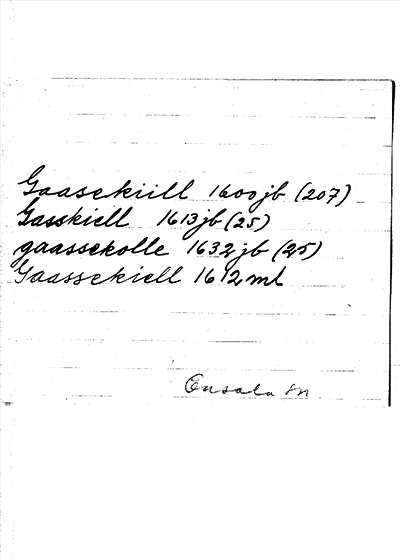 Gaasekiill 1600 jb (207)
Gasskiell 1613 jb (25)
gaassekolle 1632 jb (25)
Gaassekiell 1612 ml
Onsala sn